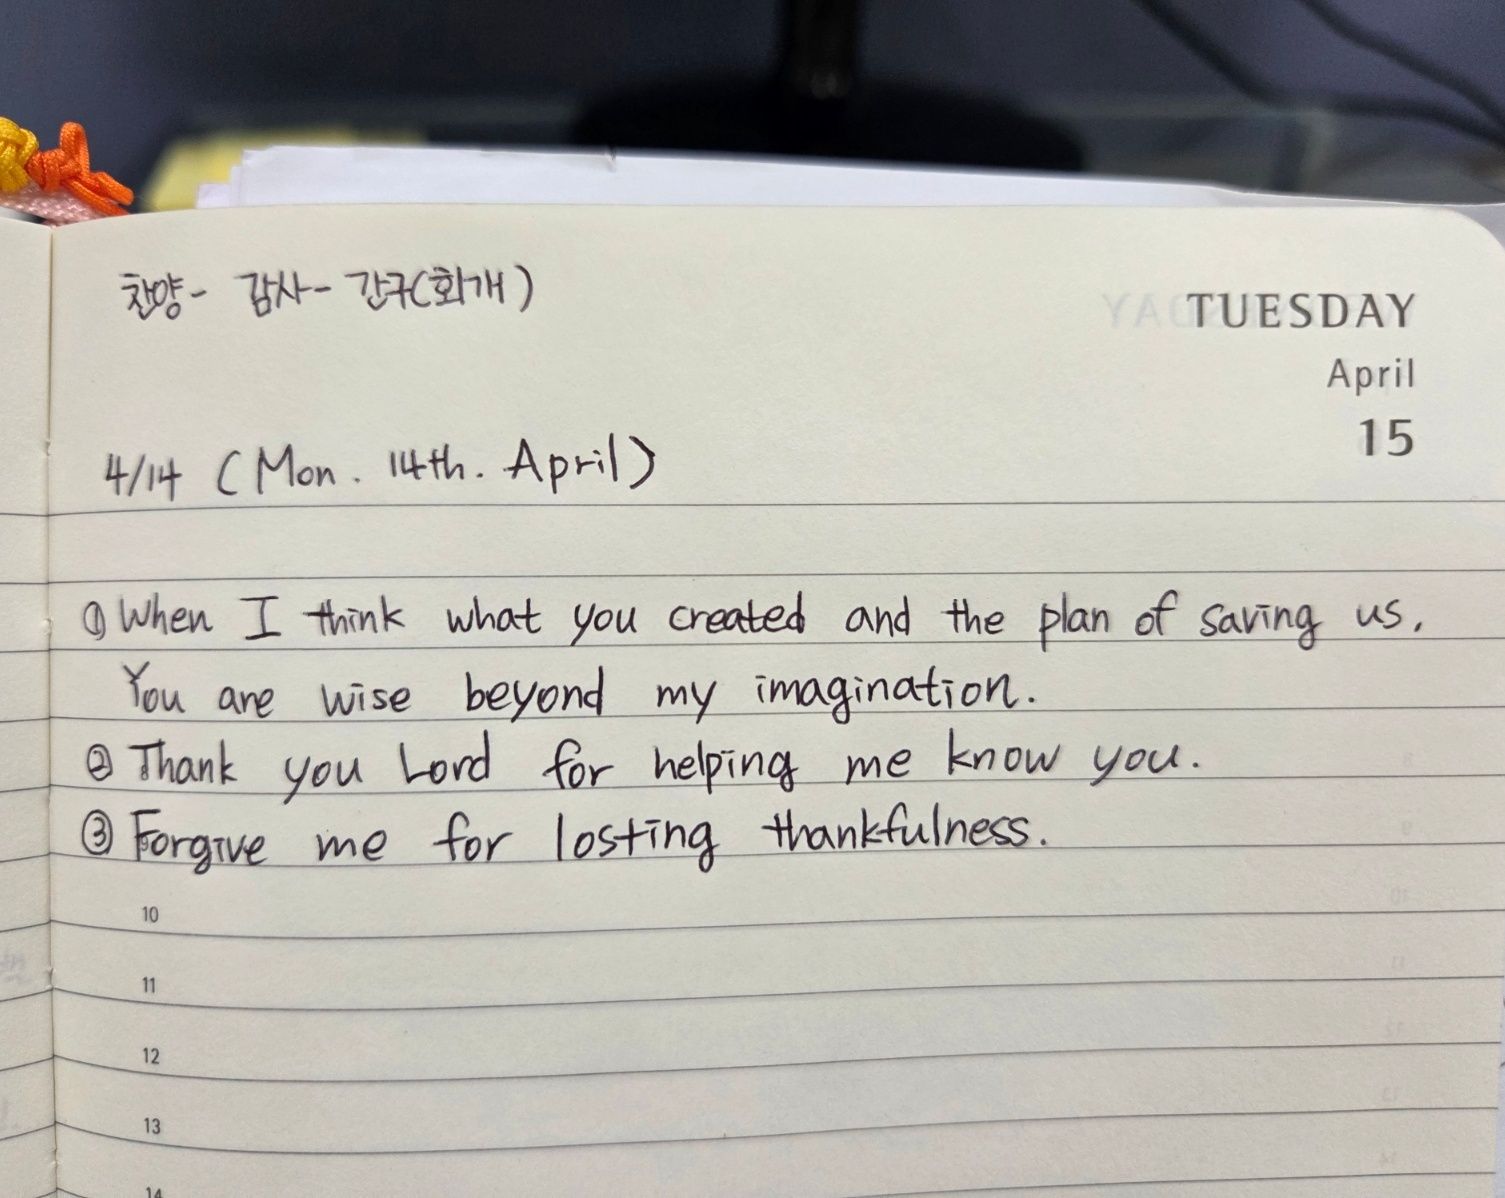 찬양- 감사- 간구(회개)
TUESDAY
April
15
4/14 (Mon. 14th. April)
① When I think what you created and the plan of saving us,
You are wise beyond my imagination.
② Thank you Lord for helping me know you.
③ Forgive me for losting thankfulness.
10
11
12
13
14